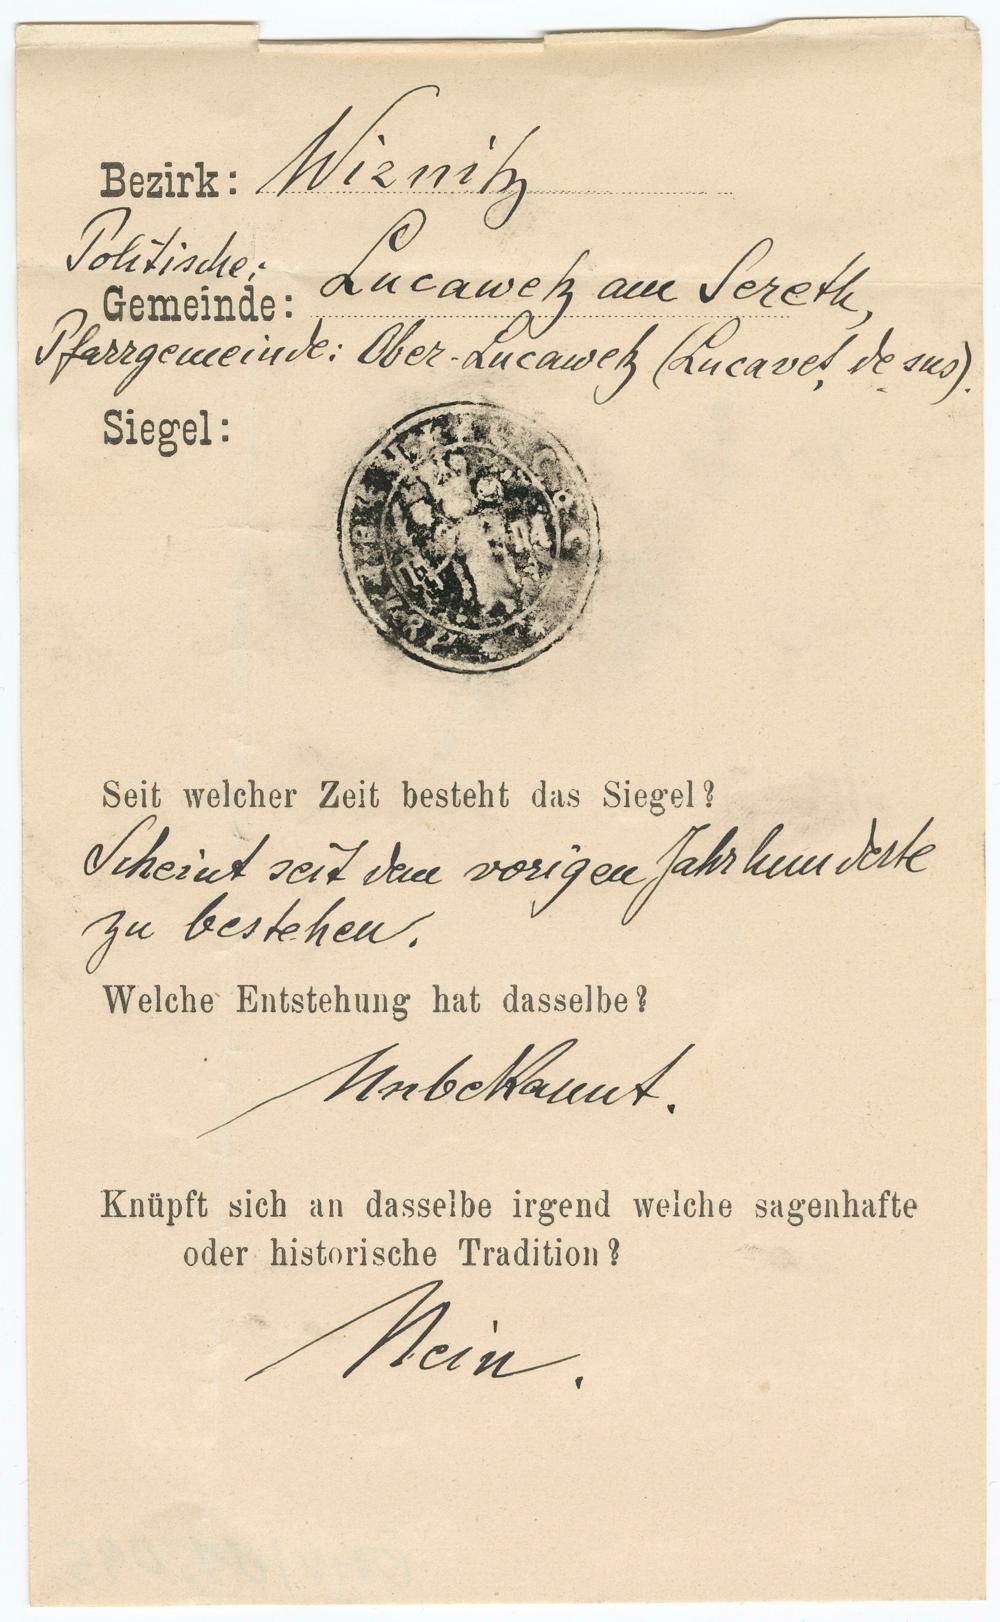 Bezirk: Wiznitz
Politische:
Gemeinde: Lucawetz am Sereth,
Pfarrgemeinde: Ober-Lucawetz (Lucaveț de sus).
Siegel:
Seit welcher Zeit besteht das Siegel?
Scheint seit dem vorigen Jahrhunderte
zu bestehen.
Welche Entstehung hat dasselbe?
Unbekannt.
Knüpft sich an dasselbe irgend welche sagenhafte
oder historische Tradition?
Nein.